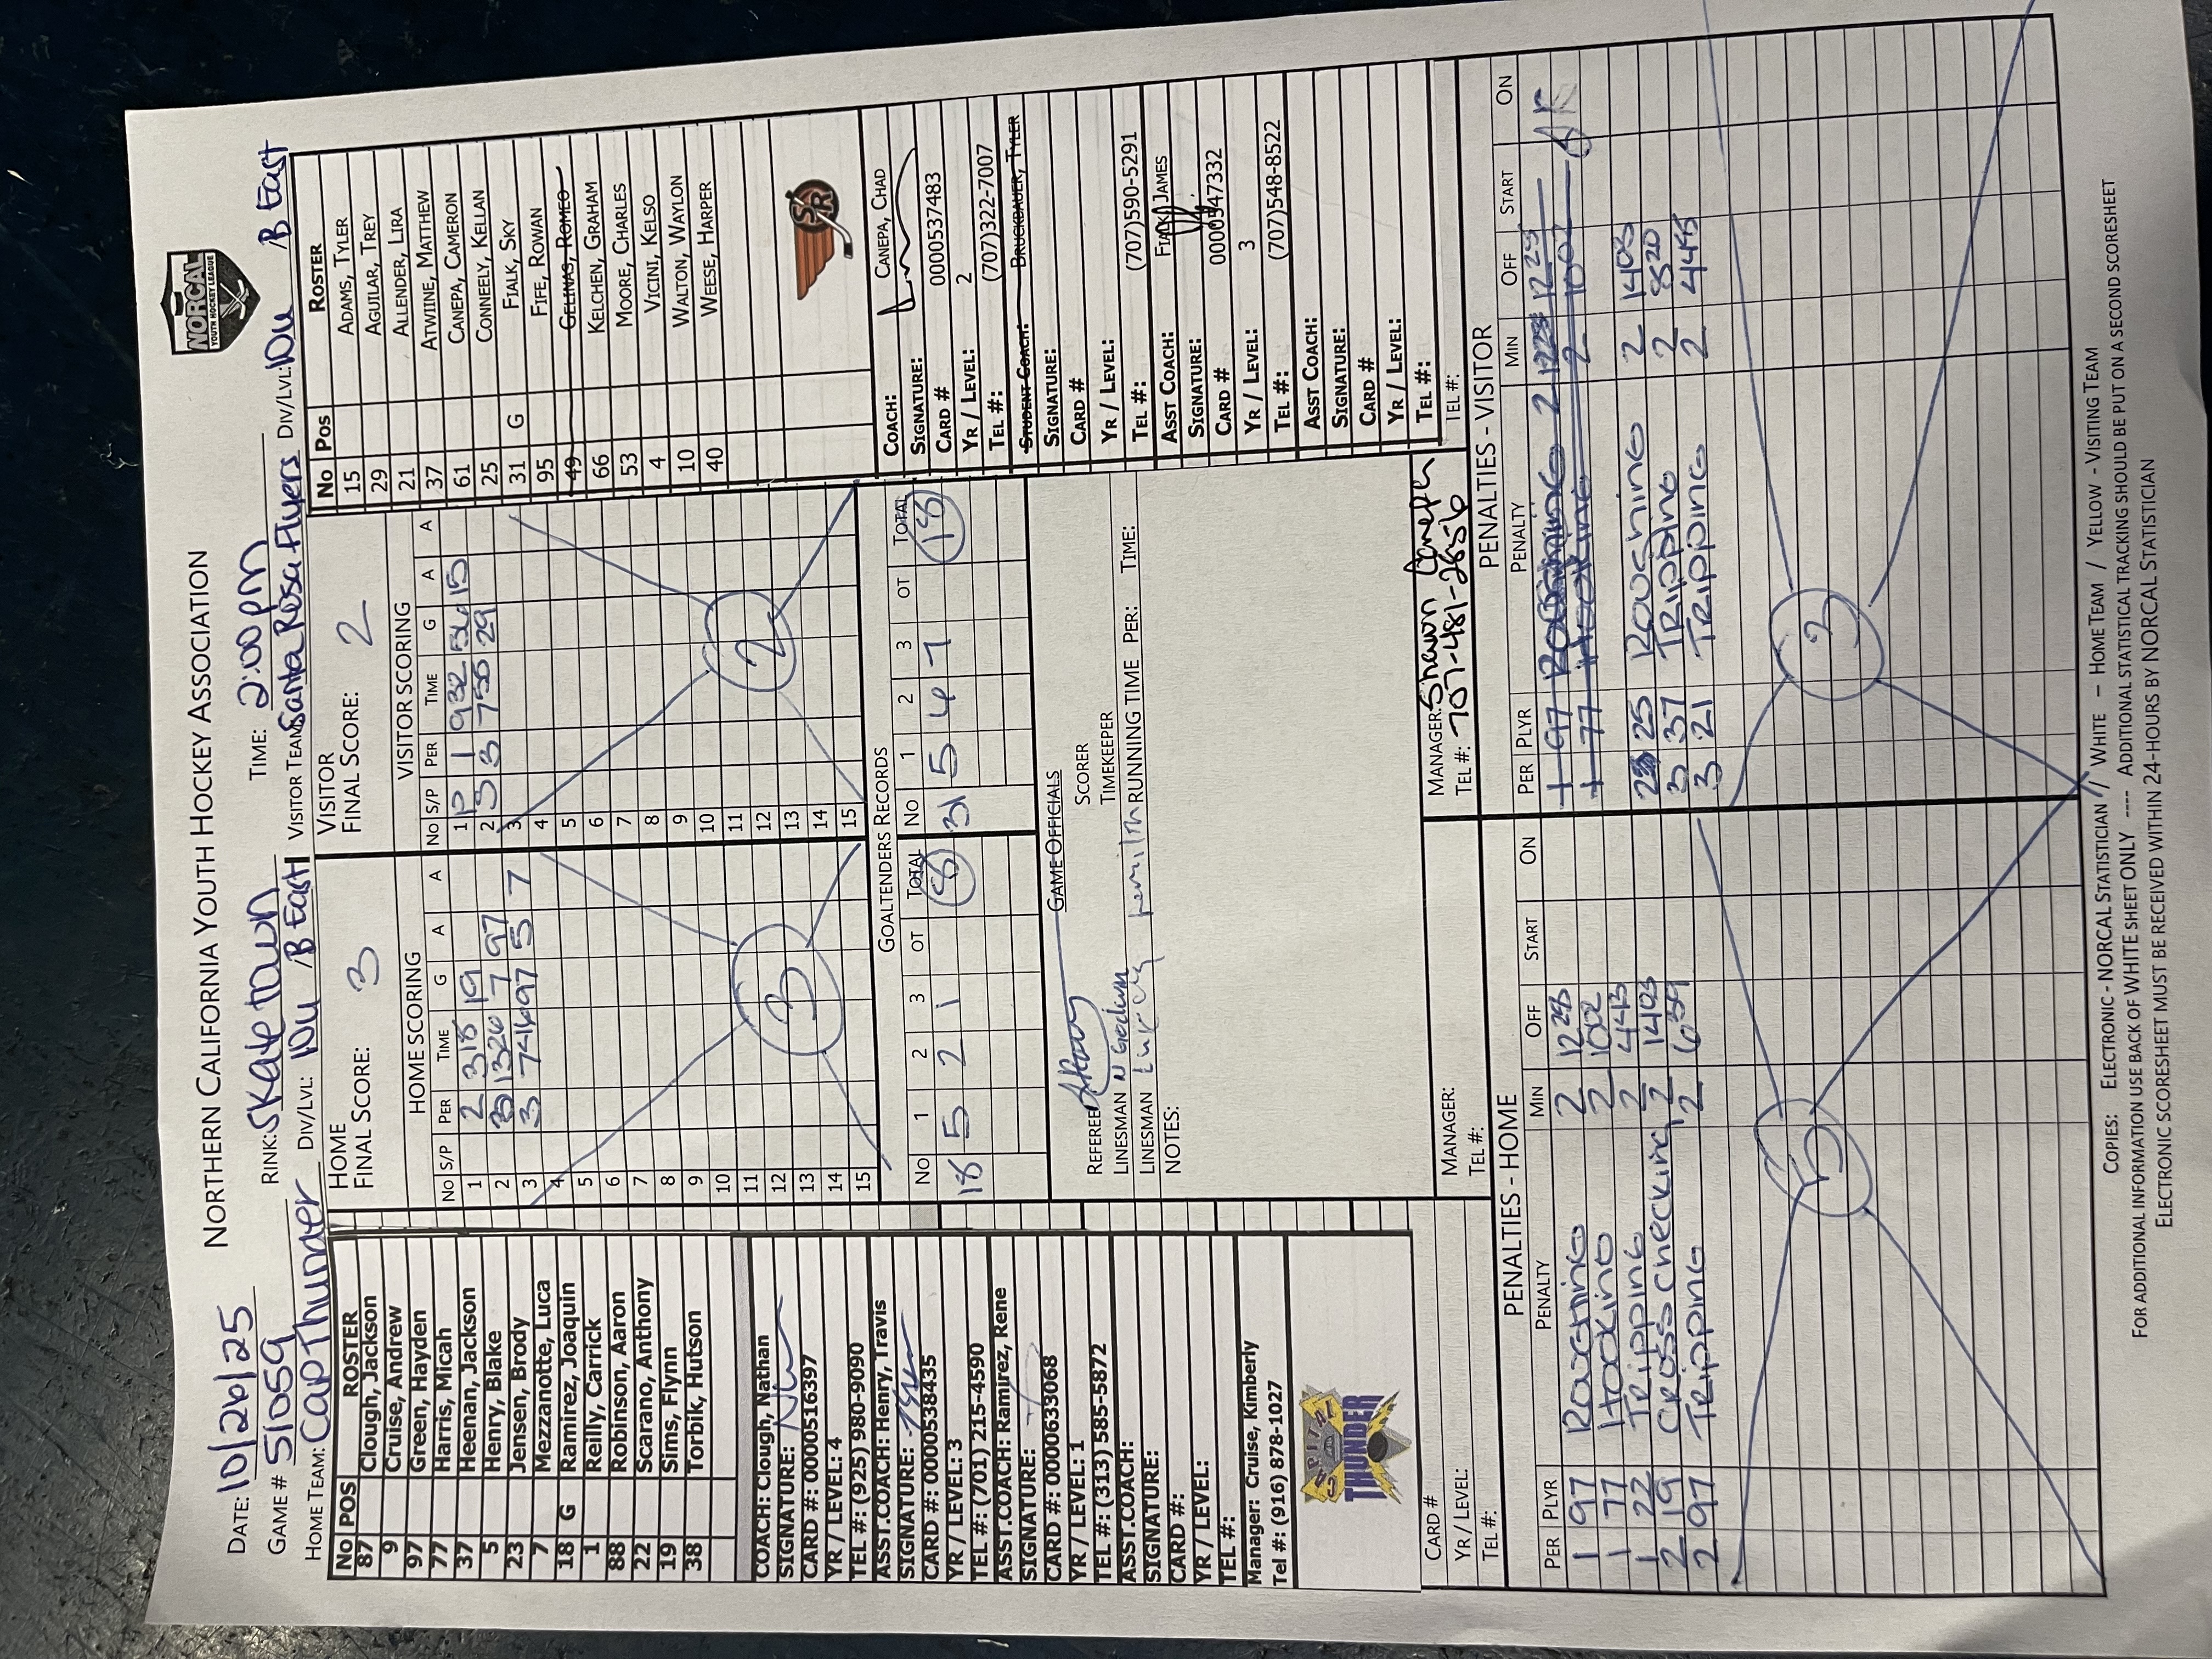 NORTHERN CALIFORNIA YOUTH HOCKEY ASSOCIATION
NORCAL
YOUTH HOCKEY LEAGUE
DATE: 10/26/25
GAME # 51059 RINK: Skatetown TIME: 2:00pm
HOME TEAM: Cap Thunder DIV/LVL: 10u B East VISITOR TEAM: Santa Rosa Flyers DIV/LVL: 10u B East
No POS ROSTER
87 Clough, Jackson
9 Cruise, Andrew
97 Green, Hayden
77 Harris, Micah
37 Heenan, Jackson
5 Henry, Blake
23 Jensen, Brody
7 Mezzanotte, Luca
18 G Ramirez, Joaquin
1 Reilly, Carrick
88 Robinson, Aaron
22 Scarano, Anthony
19 Sims, Flynn
38 Torbik, Hutson
COACH: Clough, Nathan
SIGNATURE:
CARD #: 0000516397
YR / LEVEL: 4
TEL #: (925) 980-9090
ASST.COACH: Henry, Travis
SIGNATURE:
CARD #: 0000538435
YR / LEVEL: 3
TEL #: (701) 215-4590
ASST.COACH: Ramirez, Rene
SIGNATURE:
CARD #: 0000633068
YR / LEVEL: 1
TEL #: (313) 585-5872
ASST.COACH:
SIGNATURE:
CARD #:
YR / LEVEL:
TEL #:
Manager: Cruise, Kimberly
Tel #: (916) 878-1027
CAPITAL
THUNDER
CARD #
YR / LEVEL:
TEL #:
HOME
FINAL SCORE: 3
VISITOR
FINAL SCORE: 2
HOME SCORING
No S/P PER TIME G A A
1 2 318 19
2 3 1326 7 97
3 3 741 97 5 7
4
5
6
7
8
9
10
11
12
13
14
15
3
VISITOR SCORING
No S/P PER TIME G A A
1 P 1 932 15
2 3 3 755 29
3
4
5
6
7
8
9
10
11
12
13
14
15
2
GOALTENDERS RECORDS
No 1 2 3 OT TOTAL
18 5 2 1 8
No 1 2 3 OT TOTAL
31 5 4 7 18
GAME OFFICIALS
REFEREE
LINESMAN
LINESMAN
SCORER
TIMEKEEPER
RUNNING TIME PER: TIME:
NOTES:
No Pos ROSTER
15 ADAMS, TYLER
29 AGUILAR, TREY
21 ALLENDER, LIRA
37 ATWINE, MATTHEW
61 CANEPA, CAMERON
25 CONNEELY, KELLAN
31 G FIALK, SKY
95 FIFE, ROWAN
49 GELINAS, ROMEO
66 KELCHEN, GRAHAM
53 MOORE, CHARLES
4 VICINI, KELSO
10 WALTON, WAYLON
40 WEESE, HARPER
SR
COACH: CANEPA, CHAD
SIGNATURE:
CARD # 0000537483
YR / LEVEL: 2
TEL #: (707)322-7007
STUDENT COACH: BRUCKBAUER, TYLER
SIGNATURE:
CARD #
YR / LEVEL:
TEL #: (707)590-5291
ASST COACH: FIALK, JAMES
SIGNATURE:
CARD # 0000547332
YR / LEVEL: 3
TEL #: (707)548-8522
ASST COACH:
SIGNATURE:
CARD #
YR / LEVEL:
TEL #:
TEL #:
MANAGER:
TEL #:
MANAGER: Shawn Canepa
TEL #: 707-481-2856
PENALTIES - HOME
PER PLYR PENALTY MIN OFF START ON
1 97 Roughing 2 1228
1 77 Hooking 2 1002
1 22 Tripping 2 443
2 19 Cross checking 2 1403
2 97 Tripping 2 639
5
PENALTIES - VISITOR
PER PLYR PENALTY MIN OFF START ON
1 97 Roughing 2 1228
1 77 Hooking 2 1002
2 25 Roughing 2 1403
3 37 Tripping 2 820
3 21 Tripping 2 445
3
COPIES: ELECTRONIC - NORCAL STATISTICIAN // WHITE – HOME TEAM / YELLOW - VISITING TEAM
FOR ADDITIONAL INFORMATION USE BACK OF WHITE SHEET ONLY ---- ADDITIONAL STATISTICAL TRACKING SHOULD BE PUT ON A SECOND SCORESHEET
ELECTRONIC SCORESHEET MUST BE RECEIVED WITHIN 24-HOURS BY NORCAL STATISTICIAN